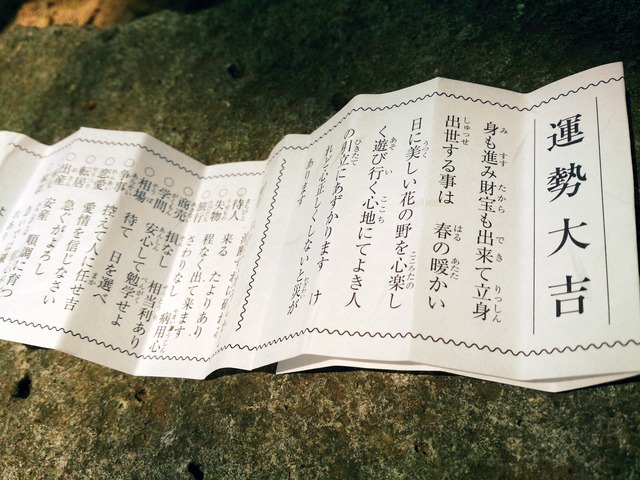 運勢大吉
身も進み財宝も出来て立身
出世する事は 春の暖かい
日に美しい花の野を心楽し
く遊び行く心地にてよき人
の引立にあずかります け
れど心正しくしないと災が
あります
待人 来る たよりあり
失物 程なし 出て来ます
旅行 さわりなし
商売 損なし 相当利あり
学問 安心して勉学せよ
相場 待て
争事 控えて人に任せ吉
恋愛 愛情を信じなさい
転居 急ぐがよろし
出産 安産